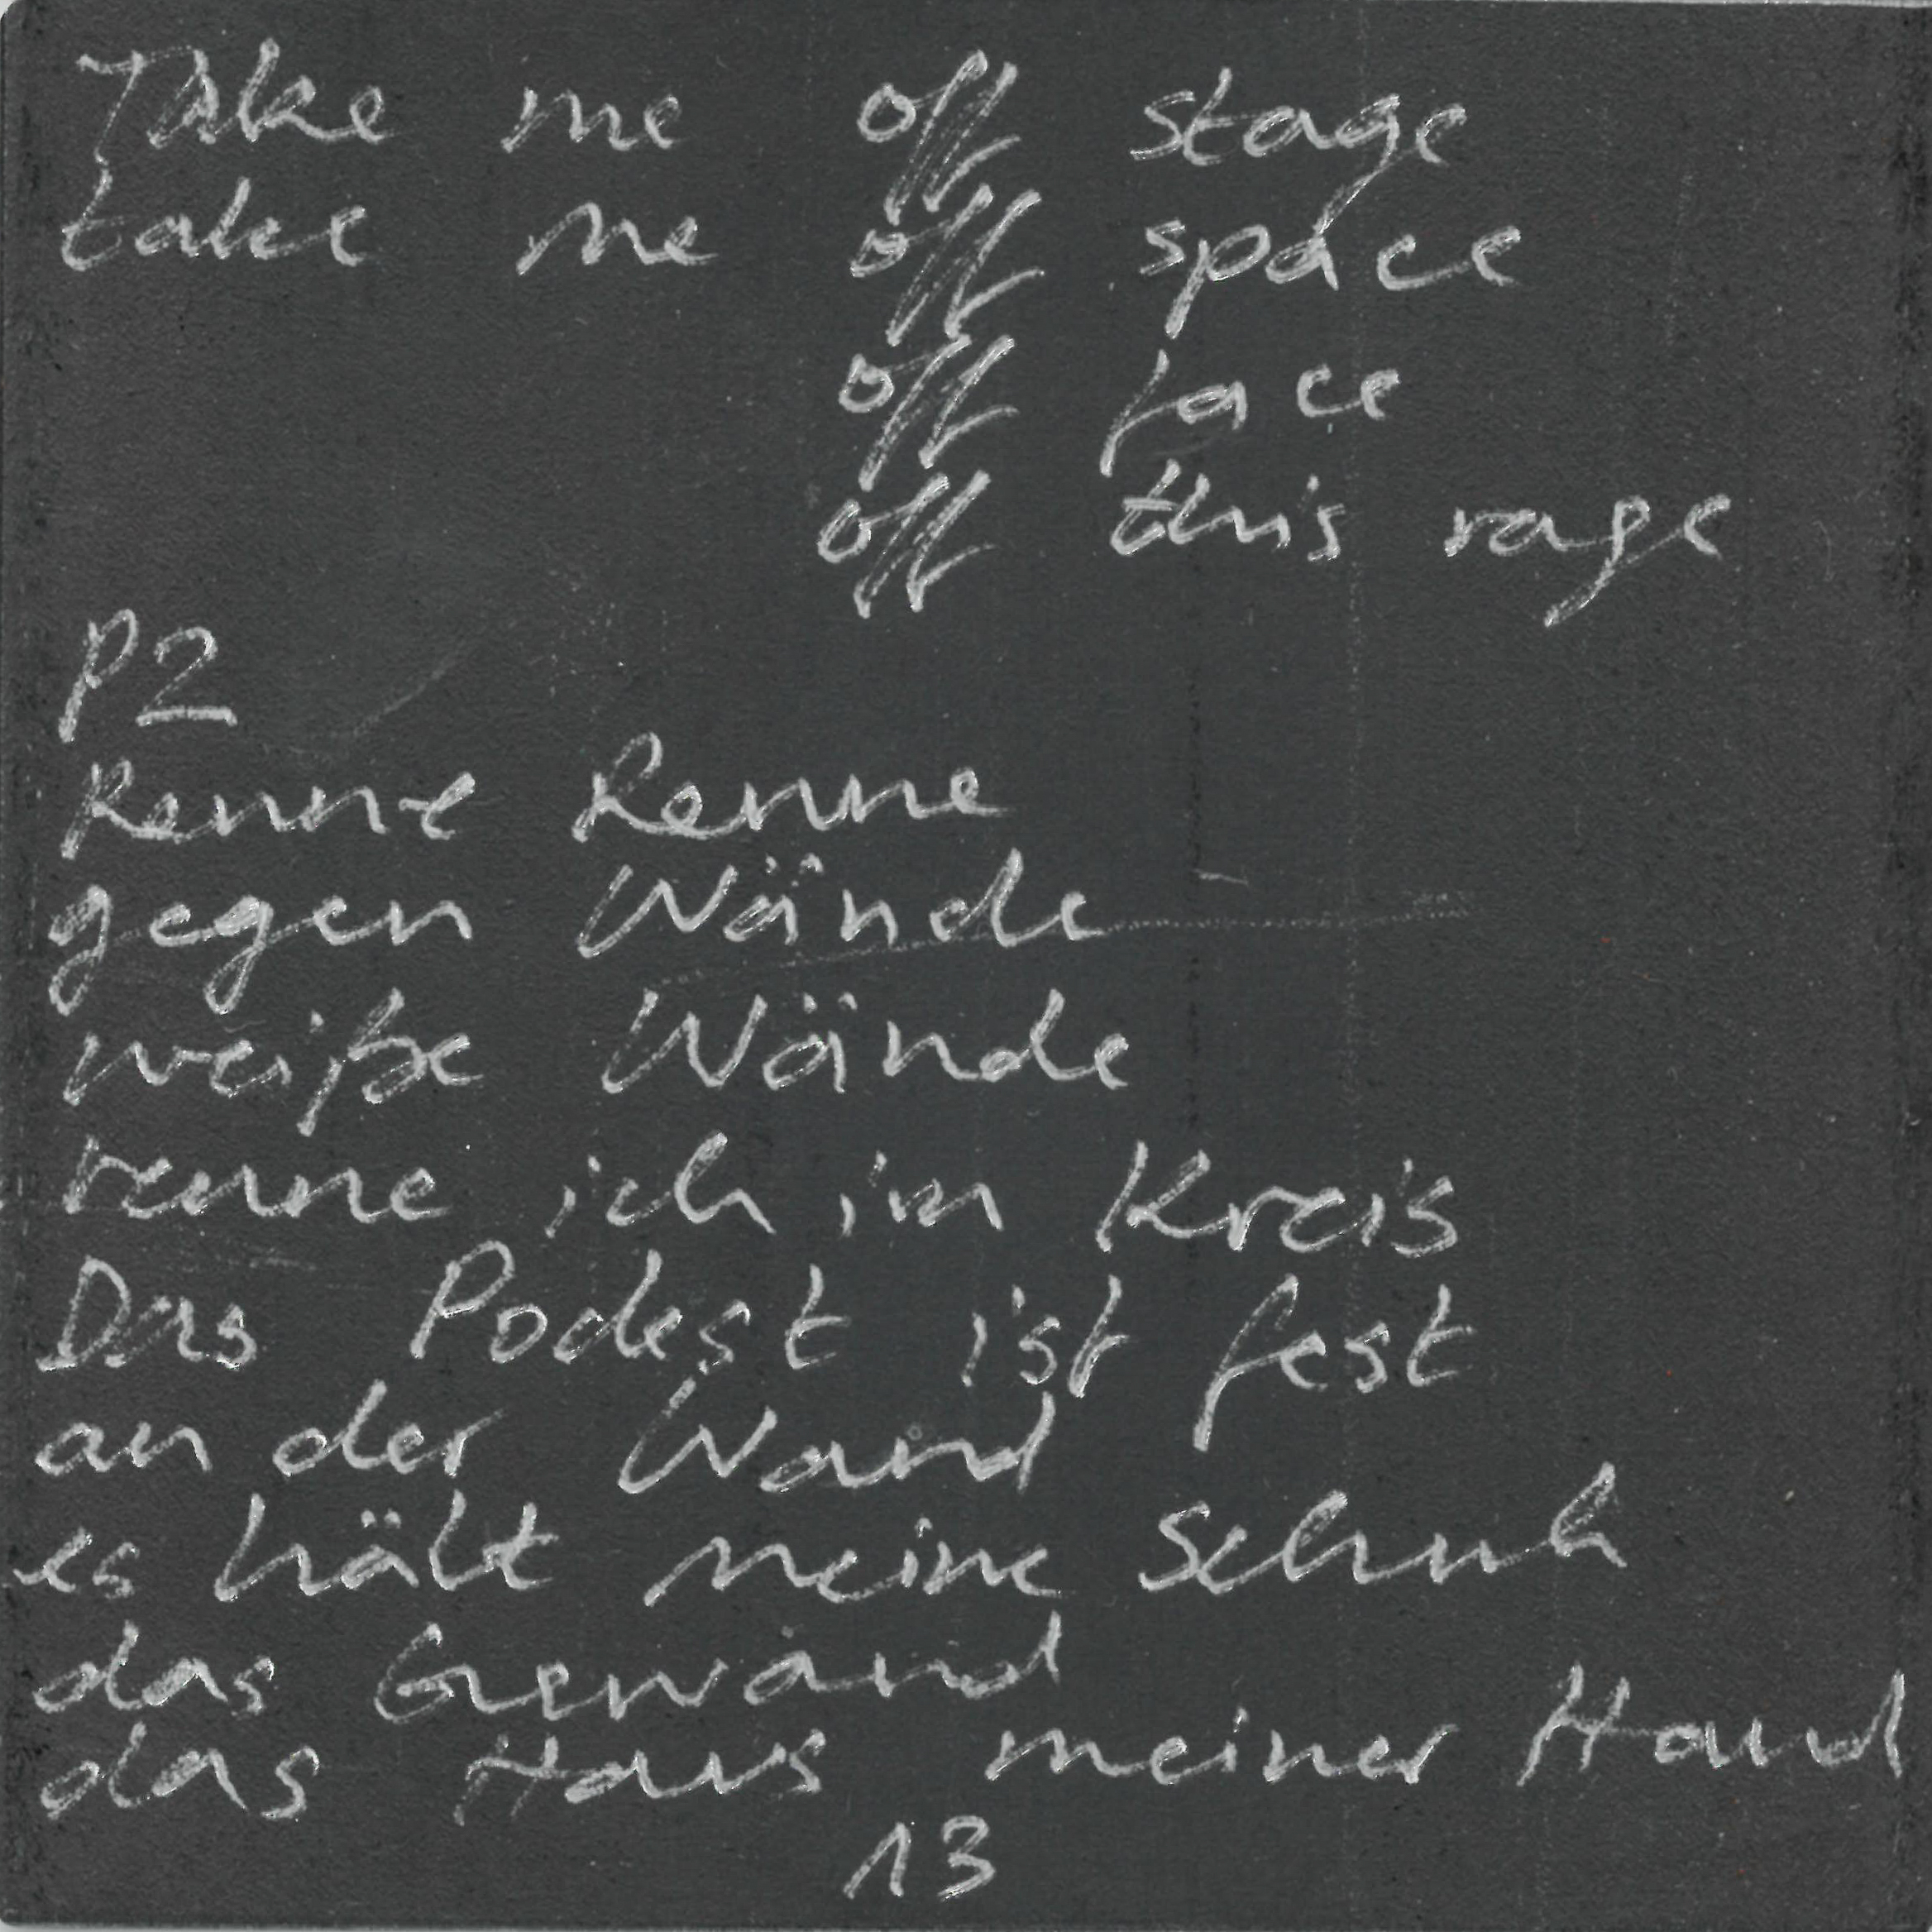 Take me off stage
take me off space
off face
off this rage
P2
Renne Renne
gegen Wände
weiße Wände
renne ich im Kreis
Das Podest ist fest
an der Wand
es hält meine Schuh
das Gewand
das Haus meiner Hand
13